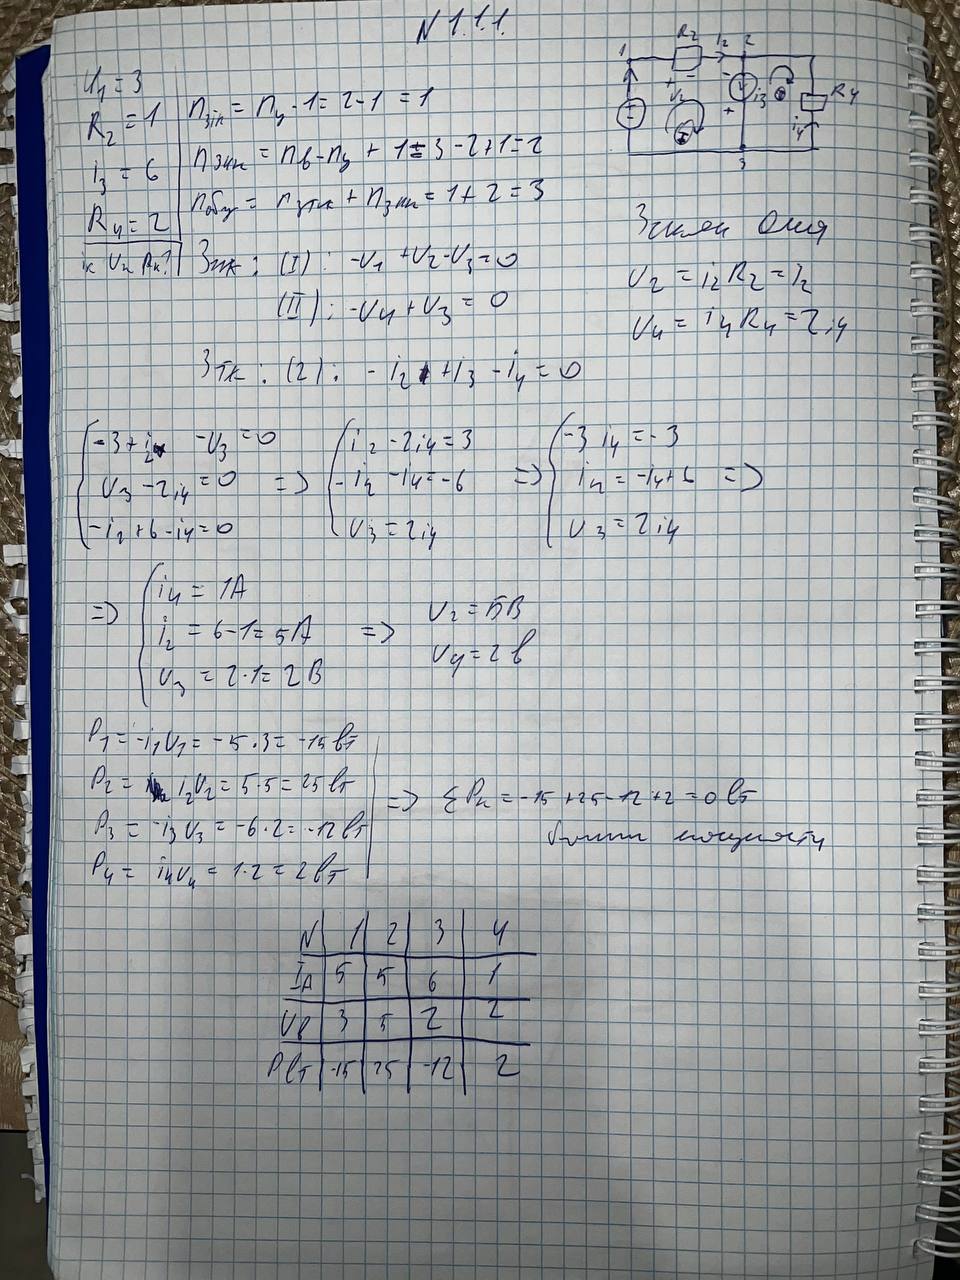 N 1.1.1.
U1 = 3
R2 = 1
i3 = 6
R4 = 2
iк Uк Pк?
nзтк = nу - 1 = 2-1 = 1
nзнк = nв - nу + 1 = 3-2+1 = 2
nобщ = nзтк + nзнк = 1+2 = 3
Знк: (I): -U1 + U2 - U3 = 0
(II): -U4 + U3 = 0
Зтк: (2): - i2 + i3 - i4 = 0
1 R2 i2 2
+ - U2 I
- + i3 II
R4 i4
3
Закон Ома
U2 = i2 R2 = i2
U4 = i4 R4 = 2i4
-3 + i2 - U3 = 0
U3 - 2i4 = 0
-i2 + 6 - i4 = 0
=>
i2 - 2i4 = 3
-i2 - i4 = -6
U3 = 2i4
=>
-3i4 = -3
i2 = -i4+6
U3 = 2i4
=>
=>
i4 = 1A
i2 = 6-1 = 5A
U3 = 2·1 = 2В
=>
U2 = 5В
U4 = 2В
P1 = -i1U1 = -5·3 = -15 Вт
P2 = i2U2 = 5·5 = 25 Вт
P3 = -i3U3 = -6·2 = -12 Вт
P4 = i4U4 = 1·2 = 2 Вт
=> ΣPк = -15+25-12+2 = 0 Вт
баланс мощности
N 1 2 3 4
IA 5 5 6 1
UВ 3 5 2 2
PВт -15 25 -12 2